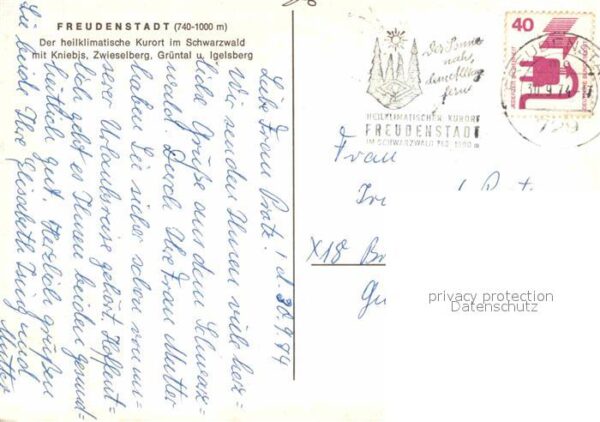 FREUDENSTADT (740-1000 m)
Der heilklimatische Kurort im Schwarzwald
mit Kniebis, Zwieselberg, Grüntal u. Igelsberg
Liebe Frau ! d. 30.9.74
Wir senden Ihnen viele herz=
liche Grüße aus dem Schwarz=
wald. Durch Ihre Frau Mutter
haben Sie sicher schon von un=
serer Urlaubsreise gehört. Hoffent=
lich geht es Ihnen beiden gesund=
heitlich gut. Herzlich grüßen
Sie beide Ihre Elisabeth und
Mutter
Der Sonne
nah,
dem Alltag
fern
HEILKLIMATISCHER KURORT
FREUDENSTADT
IM SCHWARZWALD 740-1000 m
40
DEUTSCHE BUNDESPOST
30.9.74
Frau
X18
privacy protection
Datenschutz